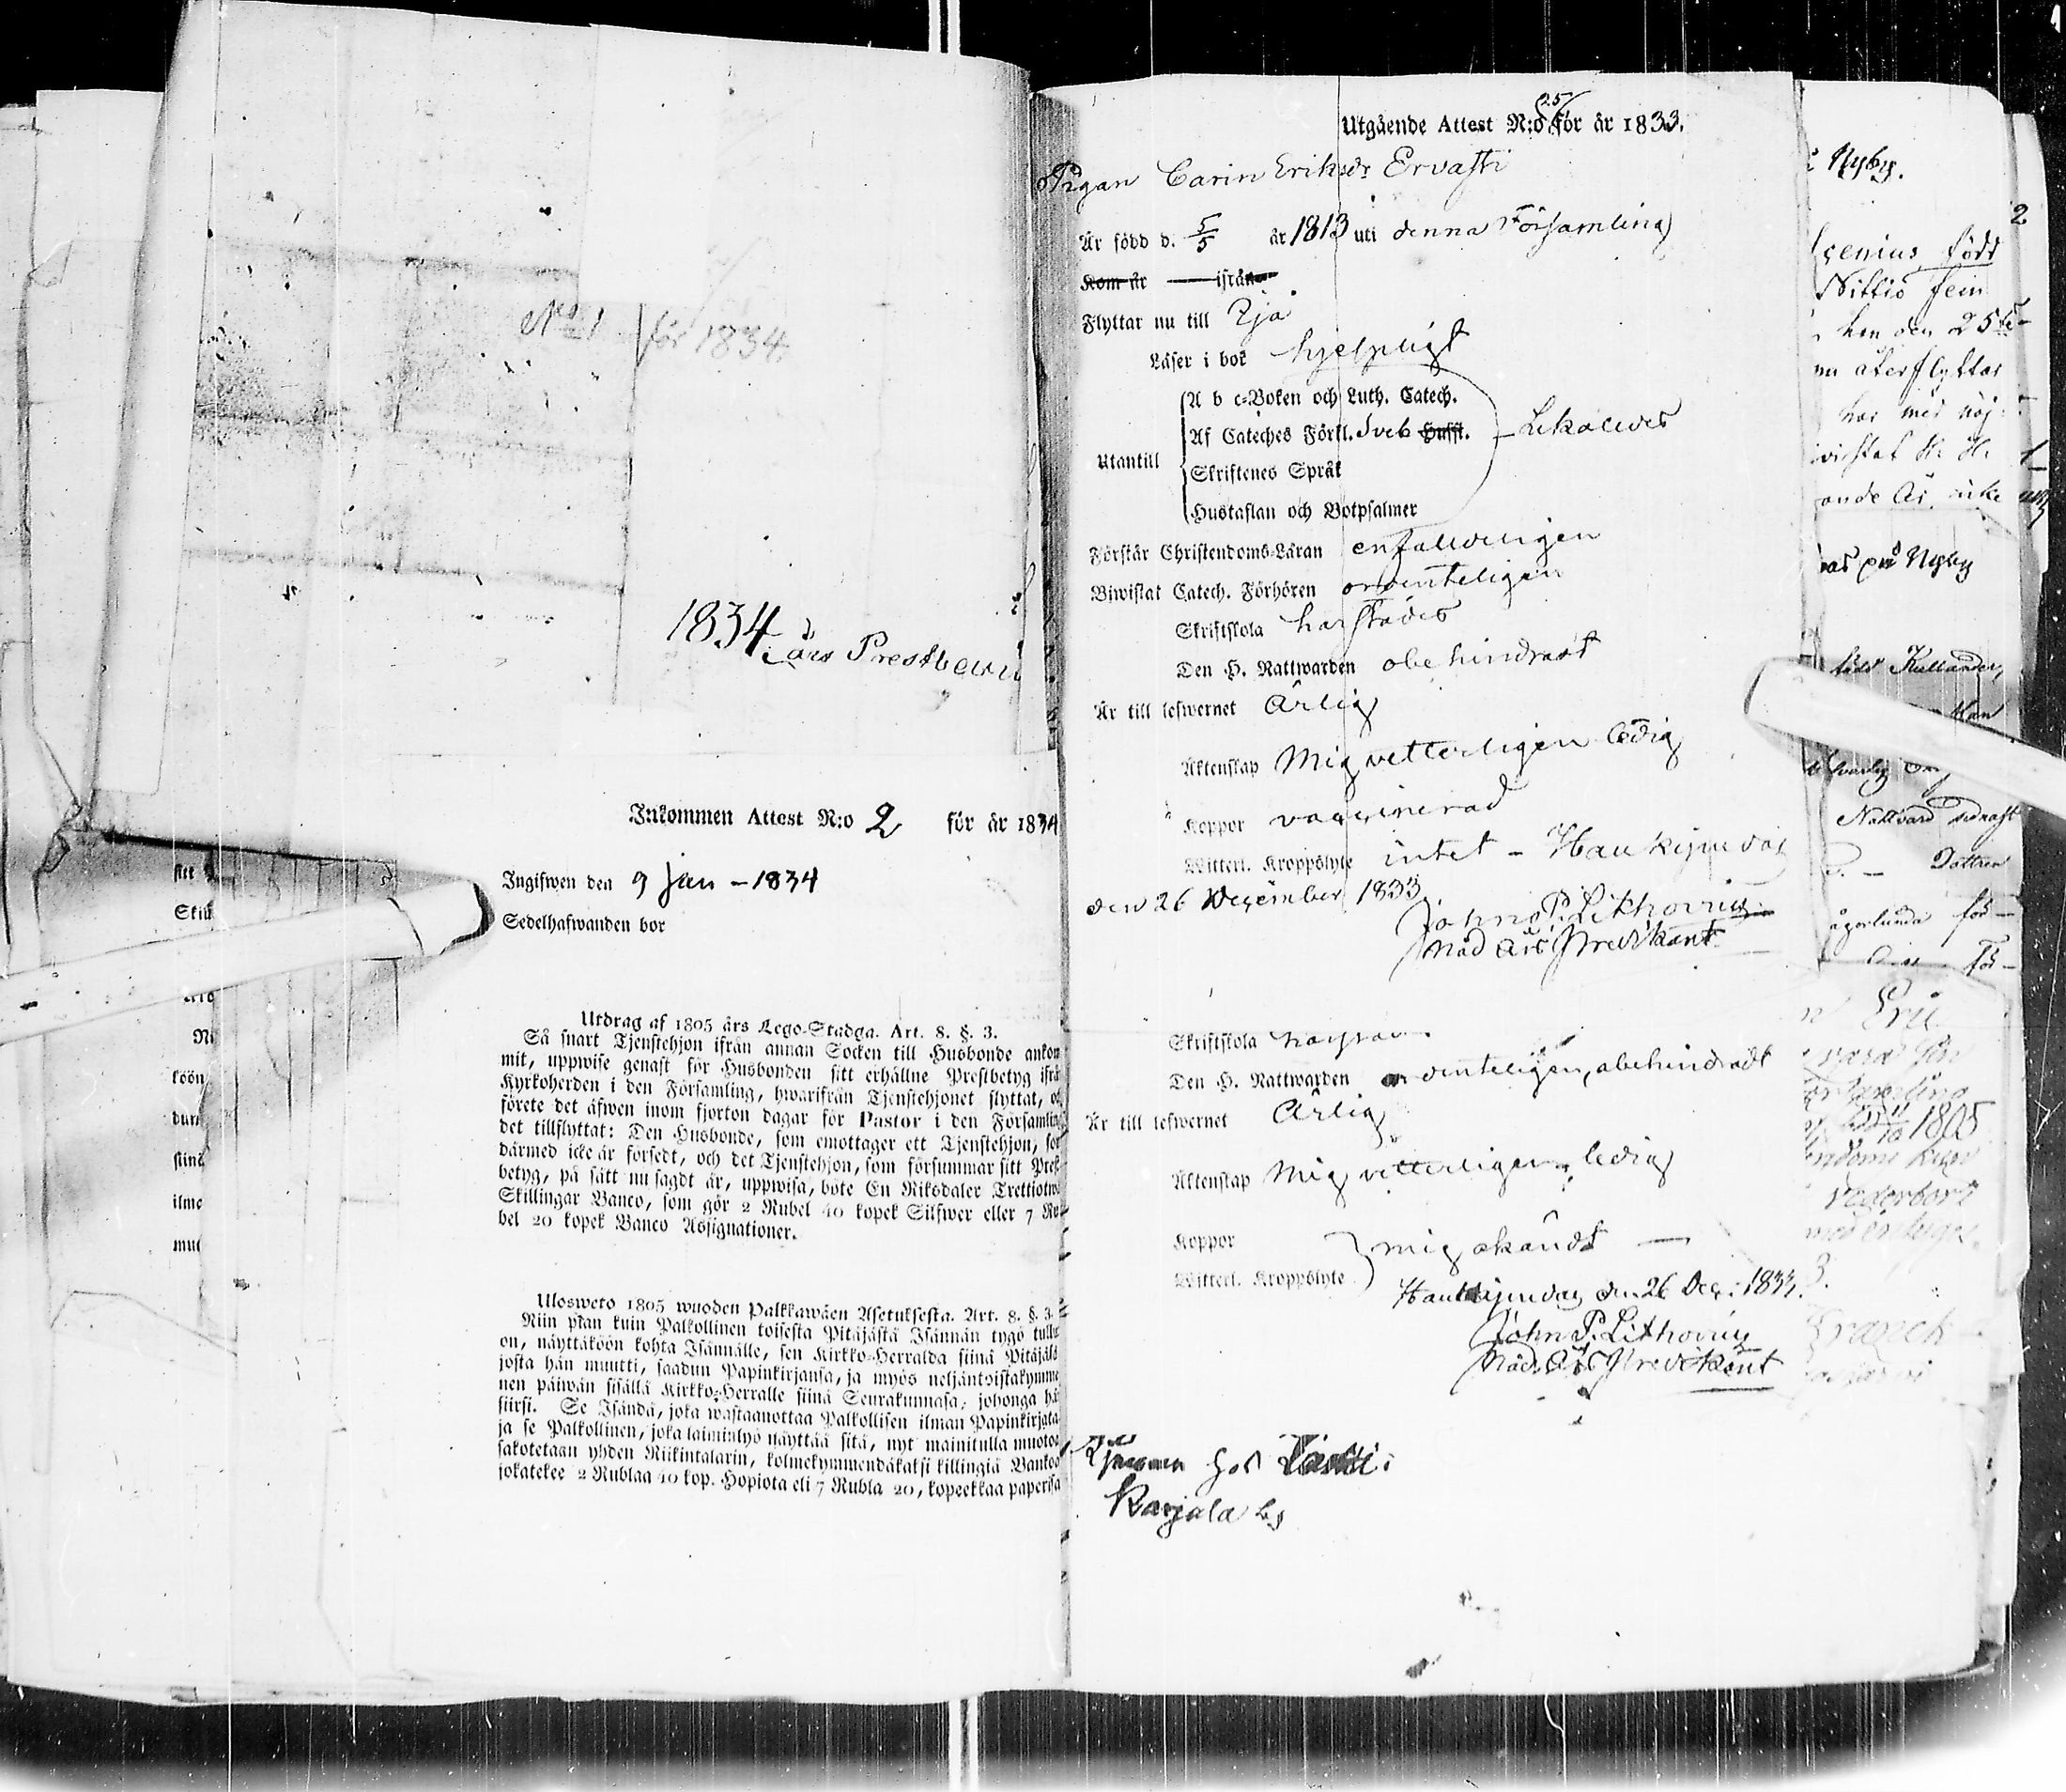 No 1 för 1834.
1834
års Prestbewis
Inkommen Attest N:o 2 för år 1834
Ingifwen den 9 Jan - 1834
Sedelhafwanden bor
Utdrag af 1805 års Lego-Stadga. Art. 8. §. 3.
Så snart Tjenstehjon ifrån annan Socken till Husbonde ankom
mit, uppwise genast för Husbonden sitt erhållne Prestbetyg ifrå
Kyrkoherden i den Församling, hwarifrån Tjenstehjonet flyttat, oc
förete det äfwen inom fjorton dagar för Pastor i den Församlin
det tillflyttat: Den Husbonde, som emottager ett Tjenstehjon, so
därmed icke är försedt, och det Tjenstehjon, som försummar sitt Prest
betyg, på sätt nu sagdt är, uppwisa, böte En Riksdaler Trettiotwå
Skillingar Banco, som gör 2 Rubel 40 kopek Silfwer eller 7 Ru
bel 20 kopek Banco Assignationer.
Ulosweto 1805 wuoden Palkkawäen Asetuksesta. Art. 8. §. 3.
Niin pian kuin Palkollinen toisesta Pitäjästä Isännän tygö tullu
on, näyttäköön kohta Isännälle, sen Kirkko-Herralda siinä Pitäjäs
josta hän muutti, saadun Papinkirjansa, ja myös neljäntoistakymme
nen päiwän sisällä Kirkko-Herralle siinä Seurakunnasa, johonga hä
siirsi. Se Isändä, joka wastaanottaa Palkollisen ilman Papinkirjata
ja se Palkollinen, joka laiminlyö näyttää sitä, nyt mainitulla muoto
sakotetaan yhden Riikintalarin, kolmekymmendäkaksi killingiä Bankos
jokatekee 2 Rublaa 40 kop. Hopiota eli 7 Rubla 20, kopeekkaa paperisa
Utgående Attest N:o 25 för år 1833.
Pigan Carin Eriksdr Ervasti
Är född d. 5/5 år 1813 uti denna Församling
Kom år ifrån
Flyttar nu till Ijo
Läser i bok hjelpligt
A b c-Boken och Luth. Catech.
Af Cateches Förkl. Sveb Husst. Likaledes
Utantill
Skriftenes Språk
Hustaflan och Botpsalmer
Förstår Christendoms-Läran enfaldeligen
Biwistat Catech. Förhören ordenteligen
Skriftskola härstädes
Den H. Nattwarden obehindradt
Är till lefwernet Ärlig
Äktenskap Mig vetterligen ledig
Koppor vaccinerad
Witterl. Kroppslyte intet - Haukipudas
den 26 December 1833
John P. Lithovius
Nåd Års Predikant
Skriftskola
Den H. Nattwarden ordenteligen, obehindradt
Är till lefwernet Ärlig
Äktenskap Mig vetterligen ledig
Koppor
mig okändt
Witterl. Kroppslyte
Haukipudas den 26 Dec: 1833.
John P. Lithovius
Nåd. Års Predikant
hos
Karjala by
Nyby.
född
Nittio fem
han den 25
återflyttar
har med nöj
på Nyby
född Kellander,
Nattvard sednast
Dottren
1805